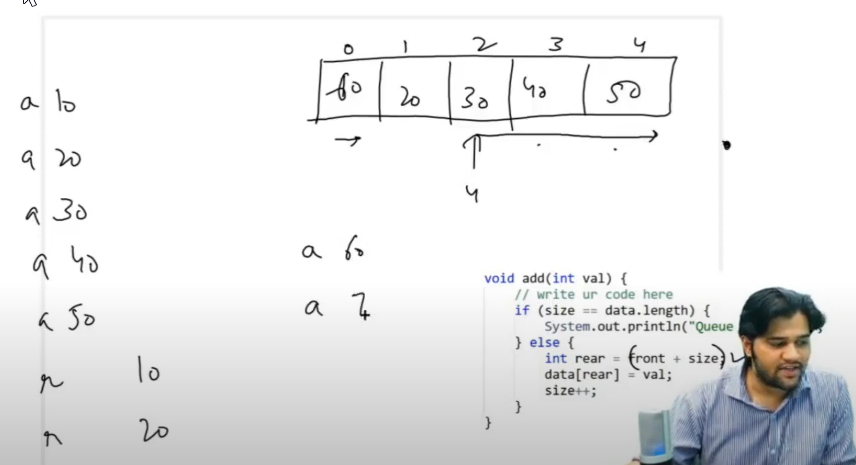 0 1 2 3 4
60 20 30 40 50
4
a 10
a 20
a 30
a 40
a 50
r 10
r 20
a 60
a 7
void add(int val) {
// write ur code here
if (size == data.length) {
System.out.println("Queue
} else {
int rear = (front + size)
data[rear] = val;
size++;
}
}